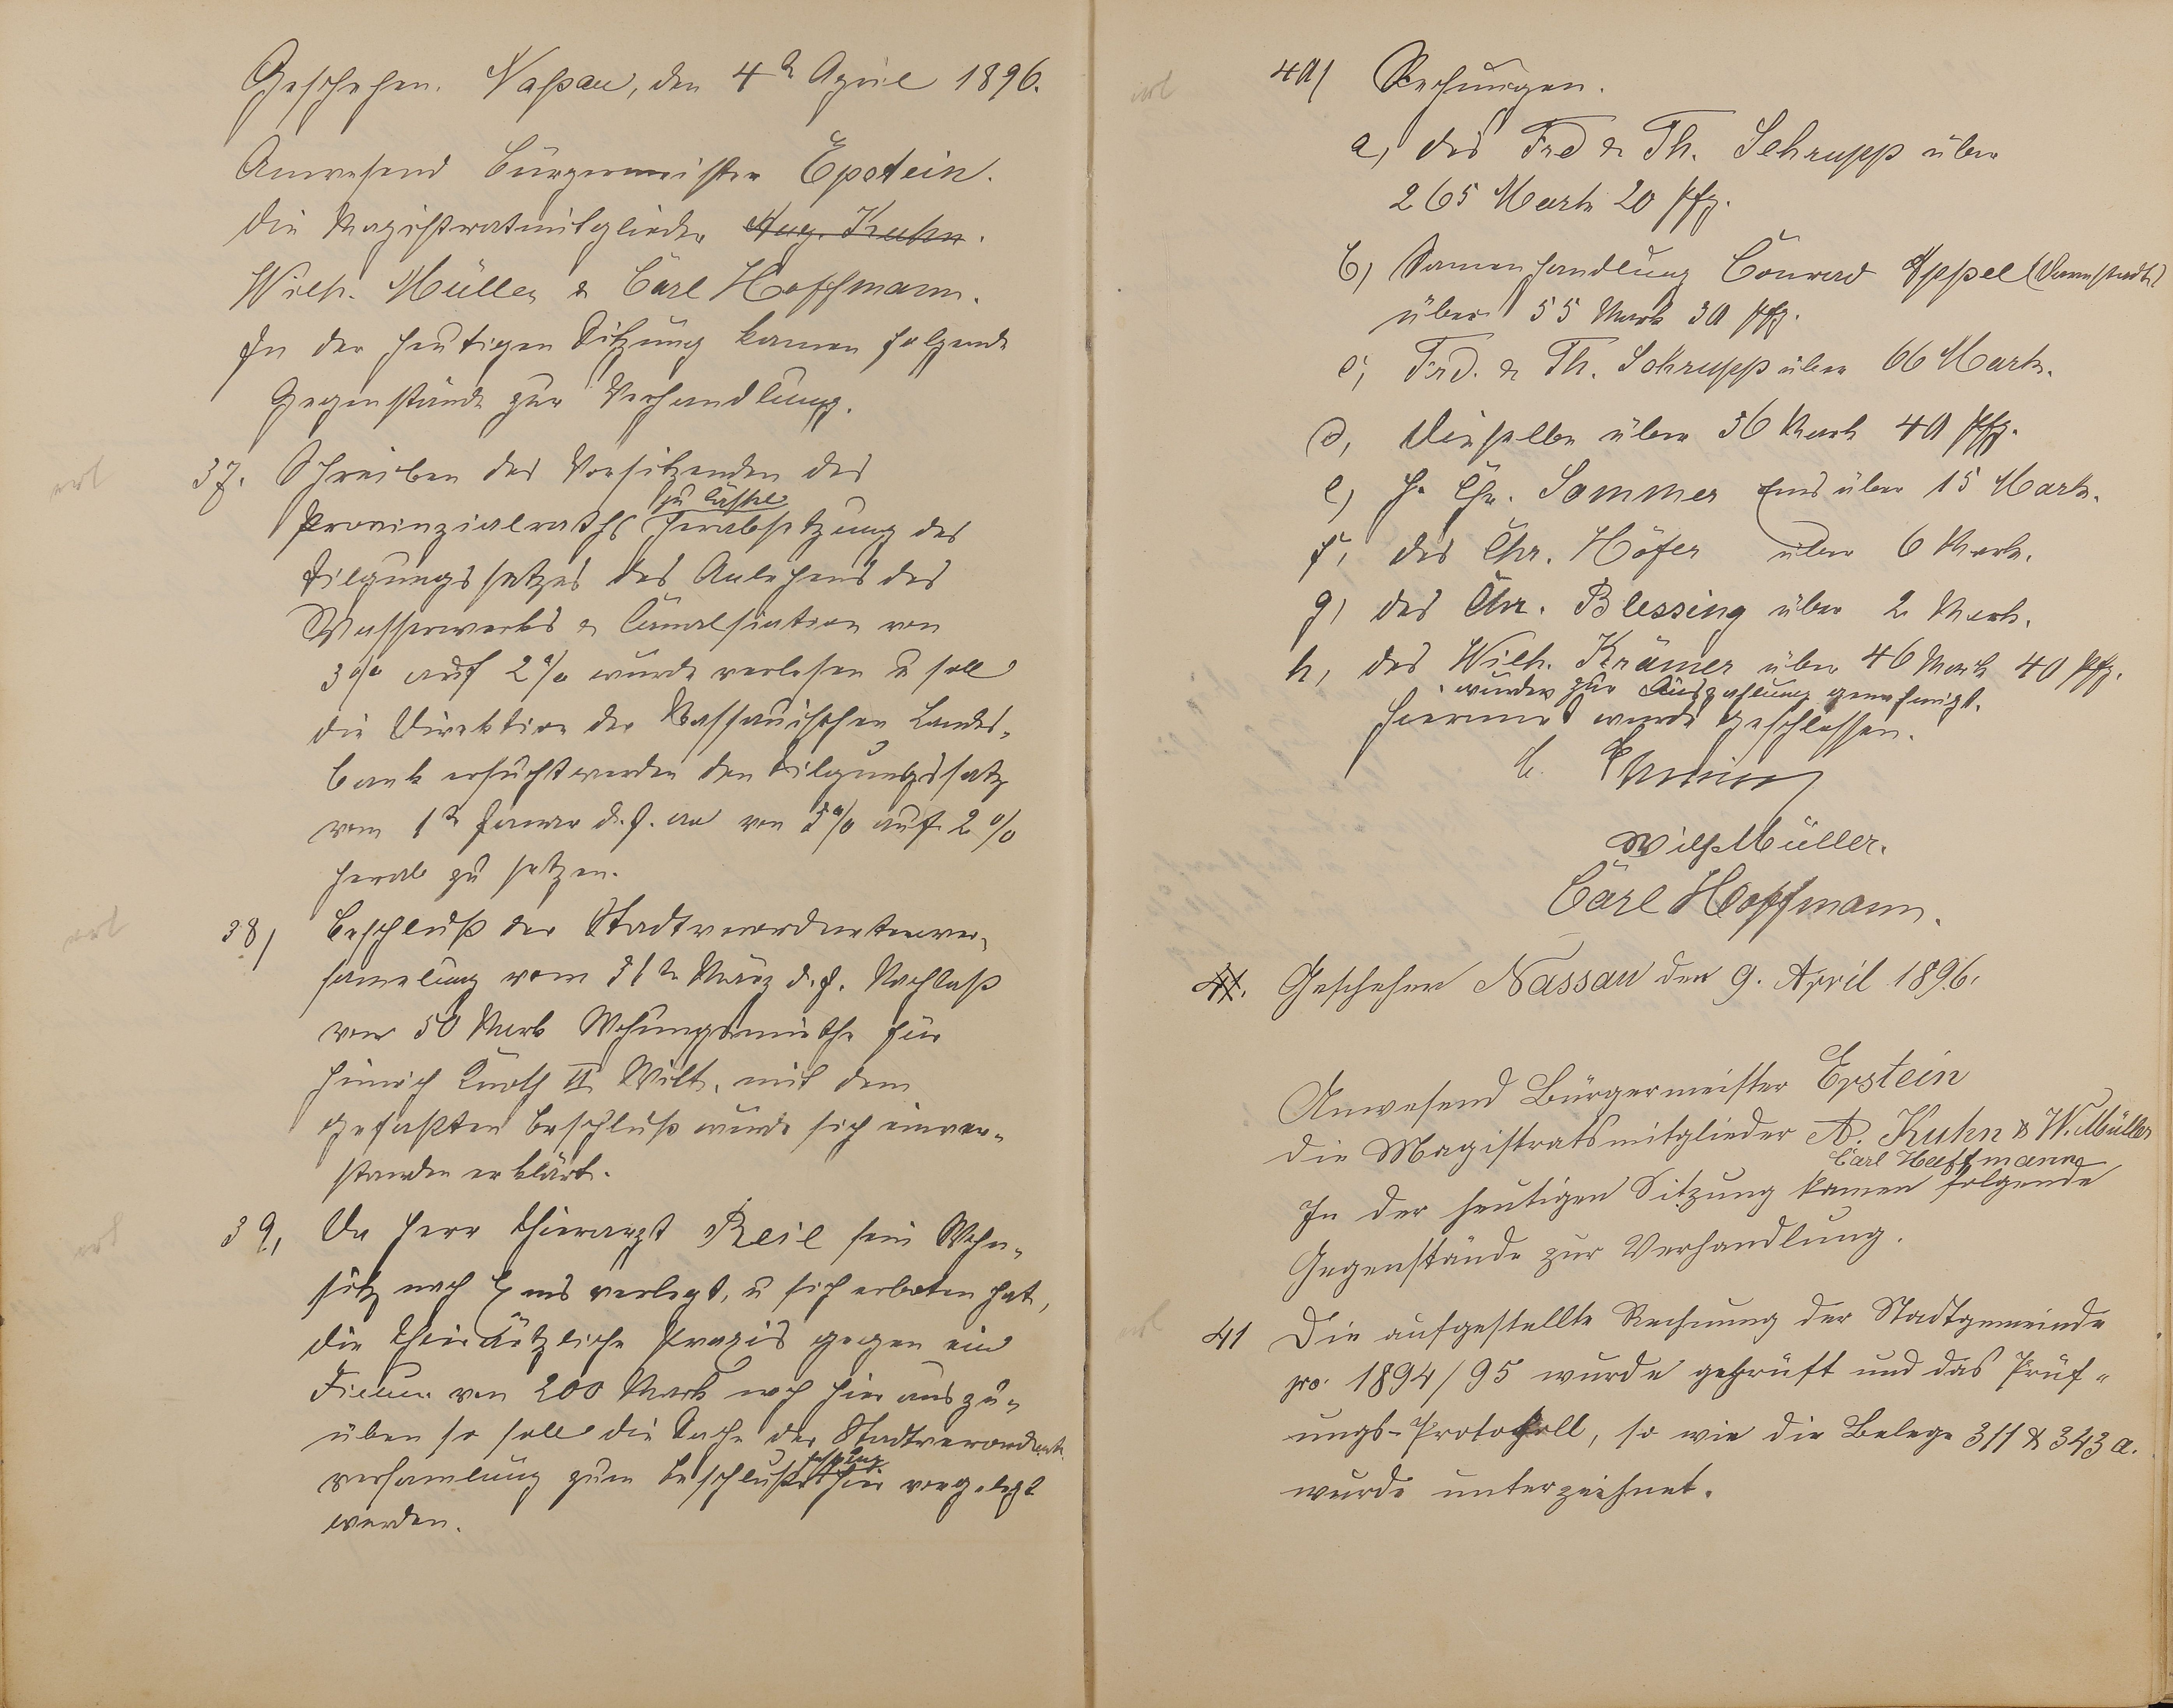 Geschehen. Naßau, den 4t April 1896.
Anwesend Bürgermeister Epstein.
die Magistratmitglieder Aug. Kuhn.
Wilh. Müller & Carl Hoffmann.
In der heutigen Sitzung kamen folgende
Gegenstände zur Verhandlung.
erl
37. Schreiben des Vorsitzenden des
zu Cassel
Provinzialraths Herabsetzung des
Tilgungssatzes des Anlehens des
Wasserwerks & Canalisation von
3% auf 2% wurde verlesen u soll
die Direktion der Nassauischen Landes-
bank ersucht werden den Tilgungssatz
vom 1t Januar d. J. an von 3% auf 2%
herab zu setzen.
erl
38) Beschluß der Stadtverordnetenver-
samlung vom 31t März d. J. Nachlaß
von 50 Mark Wohnungsmiethe für
Heinrich Knoth II Witt. mit dem
gefaßten Beschluß wurde sich einver-
standen erklärt.
erl
39, Da Herr Thierarzt Reil sein Wohn-
sitz nach Ems verlegt, u sich erboten hat,
die thierärtzliche Praxis gegen ein
Fixum von 200 Mark noch hier aus zu-
üben so soll die Sache der Stadtverordnet.
versamlung zum Beschluß hier vorgelegt
werden.
erl
40) Rechungen.
a, des Frd & Th. Schrupp über
265 Mark 20 Pfg.
b) Samenhandlung Conrad Appel (Darmstadt)
über 55 Mark 30 Pfg.
c, Frd. & Th. Schrupp über 66 Mark.
d, Dieselbe über 36 Mark 40 Pfg.
e) H. Chr. Sommer Ems über 15 Mark.
f, des Chr. Höfer über 6 Mark.
g) des Chr. Blessing über 2 Mark.
h, des Wilh. Krämer über 46 Mark 40 Pfg.
wurden zur Auszahlung genehmigt.
Hiermit wurde geschlossen.
Epstein
Wilh Müller.
Carl Hoffmann.
41. Geschehen Nassau den 9. April 1896.
Anwesend Bürgermeister Epstein
die Magistratsmitglieder A. Kuhn & W. Müller
Carl Hoffmann
In der heutigen Sitzung kamen folgende
Gegenstände zur Verhandlung.
erl
41 Die aufgestellte Rechnung der Stadtgemeinde
pro. 1894/95 wurde geprüft und das Prüf-
ungs-Protokoll, so wie die Belege 311 & 343 a.
wurde unterzeichnet.